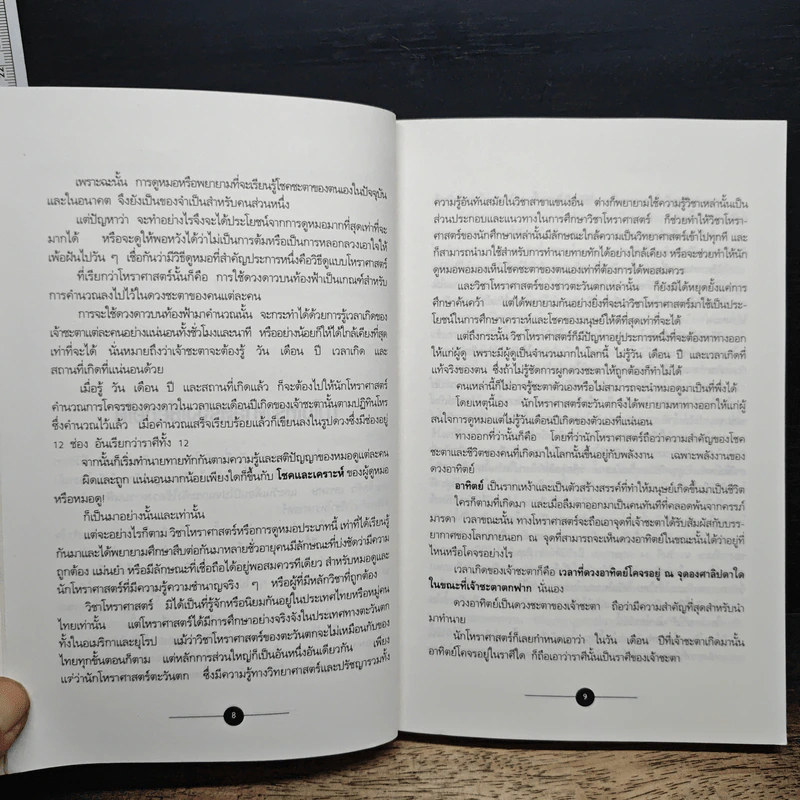 22
เพราะฉะนั้น การดูหมอหรือพยายามที่จะเรียนรู้โชคชะตาของตนเองในปัจจุบัน
และในอนาคต จึงยังเป็นของจำเป็นสำหรับคนส่วนหนึ่ง
แต่ปัญหาว่า จะทำอย่างไรจึงจะได้ประโยชน์จากการดูหมอมากที่สุดเท่าที่จะ
มากได้ หรือจะดูให้พอหวังได้ว่าไม่เป็นการต้มหรือเป็นการหลอกลวงเอาใจให้
เพ้อฝันไปวัน ๆ เชื่อกันว่ามีวิธีดูหมอที่สำคัญประการหนึ่งคือวิธีดูแบบโหราศาสตร์
ที่เรียกว่าโหราศาสตร์นั้นก็คือ การใช้ดวงดาวบนท้องฟ้าเป็นเกณฑ์สำหรับ
การคำนวณลงไปไว้ในดวงชะตาของคนแต่ละคน
การจะใช้ดวงดาวบนท้องฟ้ามาคำนวณนั้น จะกระทำได้ด้วยการรู้เวลาเกิดของ
เจ้าชะตาแต่ละคนอย่างแน่นอนทั้งชั่วโมงและนาที หรืออย่างน้อยก็ให้ได้ใกล้เคียงที่สุด
เท่าที่จะได้ นั่นหมายถึงว่าเจ้าชะตาจะต้องรู้ วัน เดือน ปี เวลาเกิด และ
สถานที่เกิดที่แน่นอนด้วย
เมื่อรู้ วัน เดือน ปี และสถานที่เกิดแล้ว ก็จะต้องไปให้นักโหราศาสตร์
คำนวณการโคจรของดวงดาวในเวลาและเดือนปีเกิดของเจ้าชะตานั้นตามปฏิทินโหร
ซึ่งคำนวณไว้แล้ว เมื่อคำนวณเสร็จเรียบร้อยแล้วก็เขียนลงในรูปดวงซึ่งมีช่องอยู่
12 ช่อง อันเรียกว่าราศีทั้ง 12
จากนั้นก็เริ่มทำนายทายทักกันตามความรู้และสติปัญญาของหมอดูแต่ละคน
ผิดและถูก แน่นอนมากน้อยเพียงใดก็ขึ้นกับ โชคและเคราะห์ ของผู้ดูหมอ
หรือหมอดู!
ก็เป็นมาอย่างนั้นและเท่านั้น
แต่จะอย่างไรก็ตาม วิชาโหราศาสตร์หรือการดูหมอประเภทนี้ เท่าที่ได้เรียนรู้
กันมาและได้พยายามศึกษาสืบต่อกันมาหลายชั่วอายุคนมีลักษณะที่บ่งชัดว่ามีความ
ถูกต้อง แม่นยำ หรือมีลักษณะที่เชื่อถือได้อยู่พอสมควรทีเดียว สำหรับหมอดูและ
นักโหราศาสตร์ที่มีความรู้ความชำนาญจริง ๆ หรือผู้ที่มีหลักวิชาที่ถูกต้อง
วิชาโหราศาสตร์ มิได้เป็นที่รู้จักหรือนิยมกันอยู่ในประเทศไทยหรือหมู่คน
ไทยเท่านั้น แต่โหราศาสตร์ได้มีการศึกษาอย่างจริงจังในประเทศทางตะวันตก
ทั้งในอเมริกาและยุโรป แม้ว่าวิชาโหราศาสตร์ของตะวันตกจะไม่เหมือนกับของ
ไทยทุกขั้นตอนก็ตาม แต่หลักการส่วนใหญ่ก็เป็นอันหนึ่งอันเดียวกัน เพียง
แต่ว่านักโหราศาสตร์ตะวันตก ซึ่งมีความรู้ทางวิทยาศาสตร์และปรัชญารวมทั้ง
8
ความรู้อันทันสมัยในวิชาสาขาแขนงอื่น ต่างก็พยายามใช้ความรู้วิชาเหล่านั้นเป็น
ส่วนประกอบและแนวทางในการศึกษาวิชาโหราศาสตร์ ก็ช่วยทำให้วิชาโหรา-
ศาสตร์ของนักศึกษาเหล่านั้นมีลักษณะใกล้ความเป็นวิทยาศาสตร์เข้าไปทุกที และ
ก็สามารถนำมาใช้สำหรับการทำนายทายทักได้อย่างใกล้เคียง หรือจะช่วยทำให้นัก
ดูหมอพอมองเห็นโชคชะตาของตนเองเท่าที่ต้องการได้พอสมควร
และวิชาโหราศาสตร์ของชาวตะวันตกเหล่านั้น ก็ยังมิได้หยุดยั้งแค่การ
ศึกษาค้นคว้า แต่ได้พยายามกันอย่างยิ่งที่จะนำวิชาโหราศาสตร์มาใช้เป็นประ-
โยชน์ในการศึกษาเคราะห์และโชคของมนุษย์ให้ดีที่สุดเท่าที่จะได้
แต่ถึงกระนั้น วิชาโหราศาสตร์ก็มีปัญหาอยู่ประการหนึ่งซึ่งจะต้องหาทางออก
ให้แก่ผู้ดู เพราะมีผู้ดูเป็นจำนวนมากในโลกนี้ ไม่รู้วัน เดือน ปี และเวลาเกิดที่
แท้จริงของตน ซึ่งถ้าไม่รู้ชัดการผูกดวงชะตาให้ถูกต้องก็ทำไม่ได้
คนเหล่านี้ก็ไม่อาจรู้ชะตาตัวเองหรือไม่สามารถจะนำหมอดูมาเป็นที่พึ่งได้
โดยเหตุนี้เอง นักโหราศาสตร์ตะวันตกจึงได้พยายามหาทางออก ให้แก่ผู้
สนใจการดูหมอแต่ไม่รู้วันเดือนปีเกิดของตัวเองที่แน่นอน
ทางออกที่ว่านั้นก็คือ โดยที่ว่านักโหราศาสตร์ถือว่าความสำคัญของโชค
ชะตาและชีวิตของคนที่เกิดมาในโลกนั้นขึ้นอยู่กับพลังงาน เฉพาะพลังงานของ
ดวงอาทิตย์
อาทิตย์ เป็นรากเหง้าและเป็นตัวสร้างสรรค์ที่ทำให้มนุษย์เกิดขึ้นมาเป็นชีวิต
ใครก็ตามที่เกิดมา และเมื่อลืมตาออกมาเป็นคนทันทีที่คลอดพ้นจากครรภ์
มารดา เวลาขณะนั้น ทางโหราศาสตร์จะถือเอาจุดที่เจ้าชะตาได้รับสัมผัสกับบรร-
ยากาศของโลกภายนอก ณ จุดที่สามารถจะเห็นดวงอาทิตย์ในขณะนั้นได้ว่าอยู่ที่
ไหนหรือโคจรอย่างไร
เวลาเกิดของเจ้าชะตาก็คือ เวลาที่ดวงอาทิตย์โคจรอยู่ ณ จุดองศาลิปดาใด
ในขณะที่เจ้าชะตาตกฟาก นั่นเอง
ดวงอาทิตย์เป็นดวงชะตาของเจ้าชะตา ถือว่ามีความสำคัญที่สุดสำหรับนำ
มาทำนาย
นักโหราศาสตร์ก็เลยกำหนดเอาว่า ในวัน เดือน ปีที่เจ้าชะตาเกิดมานั้น
อาทิตย์โคจรอยู่ในราศีใด ก็ถือเอาว่าราศีนั้นเป็นราศีของเจ้าชะตา
9